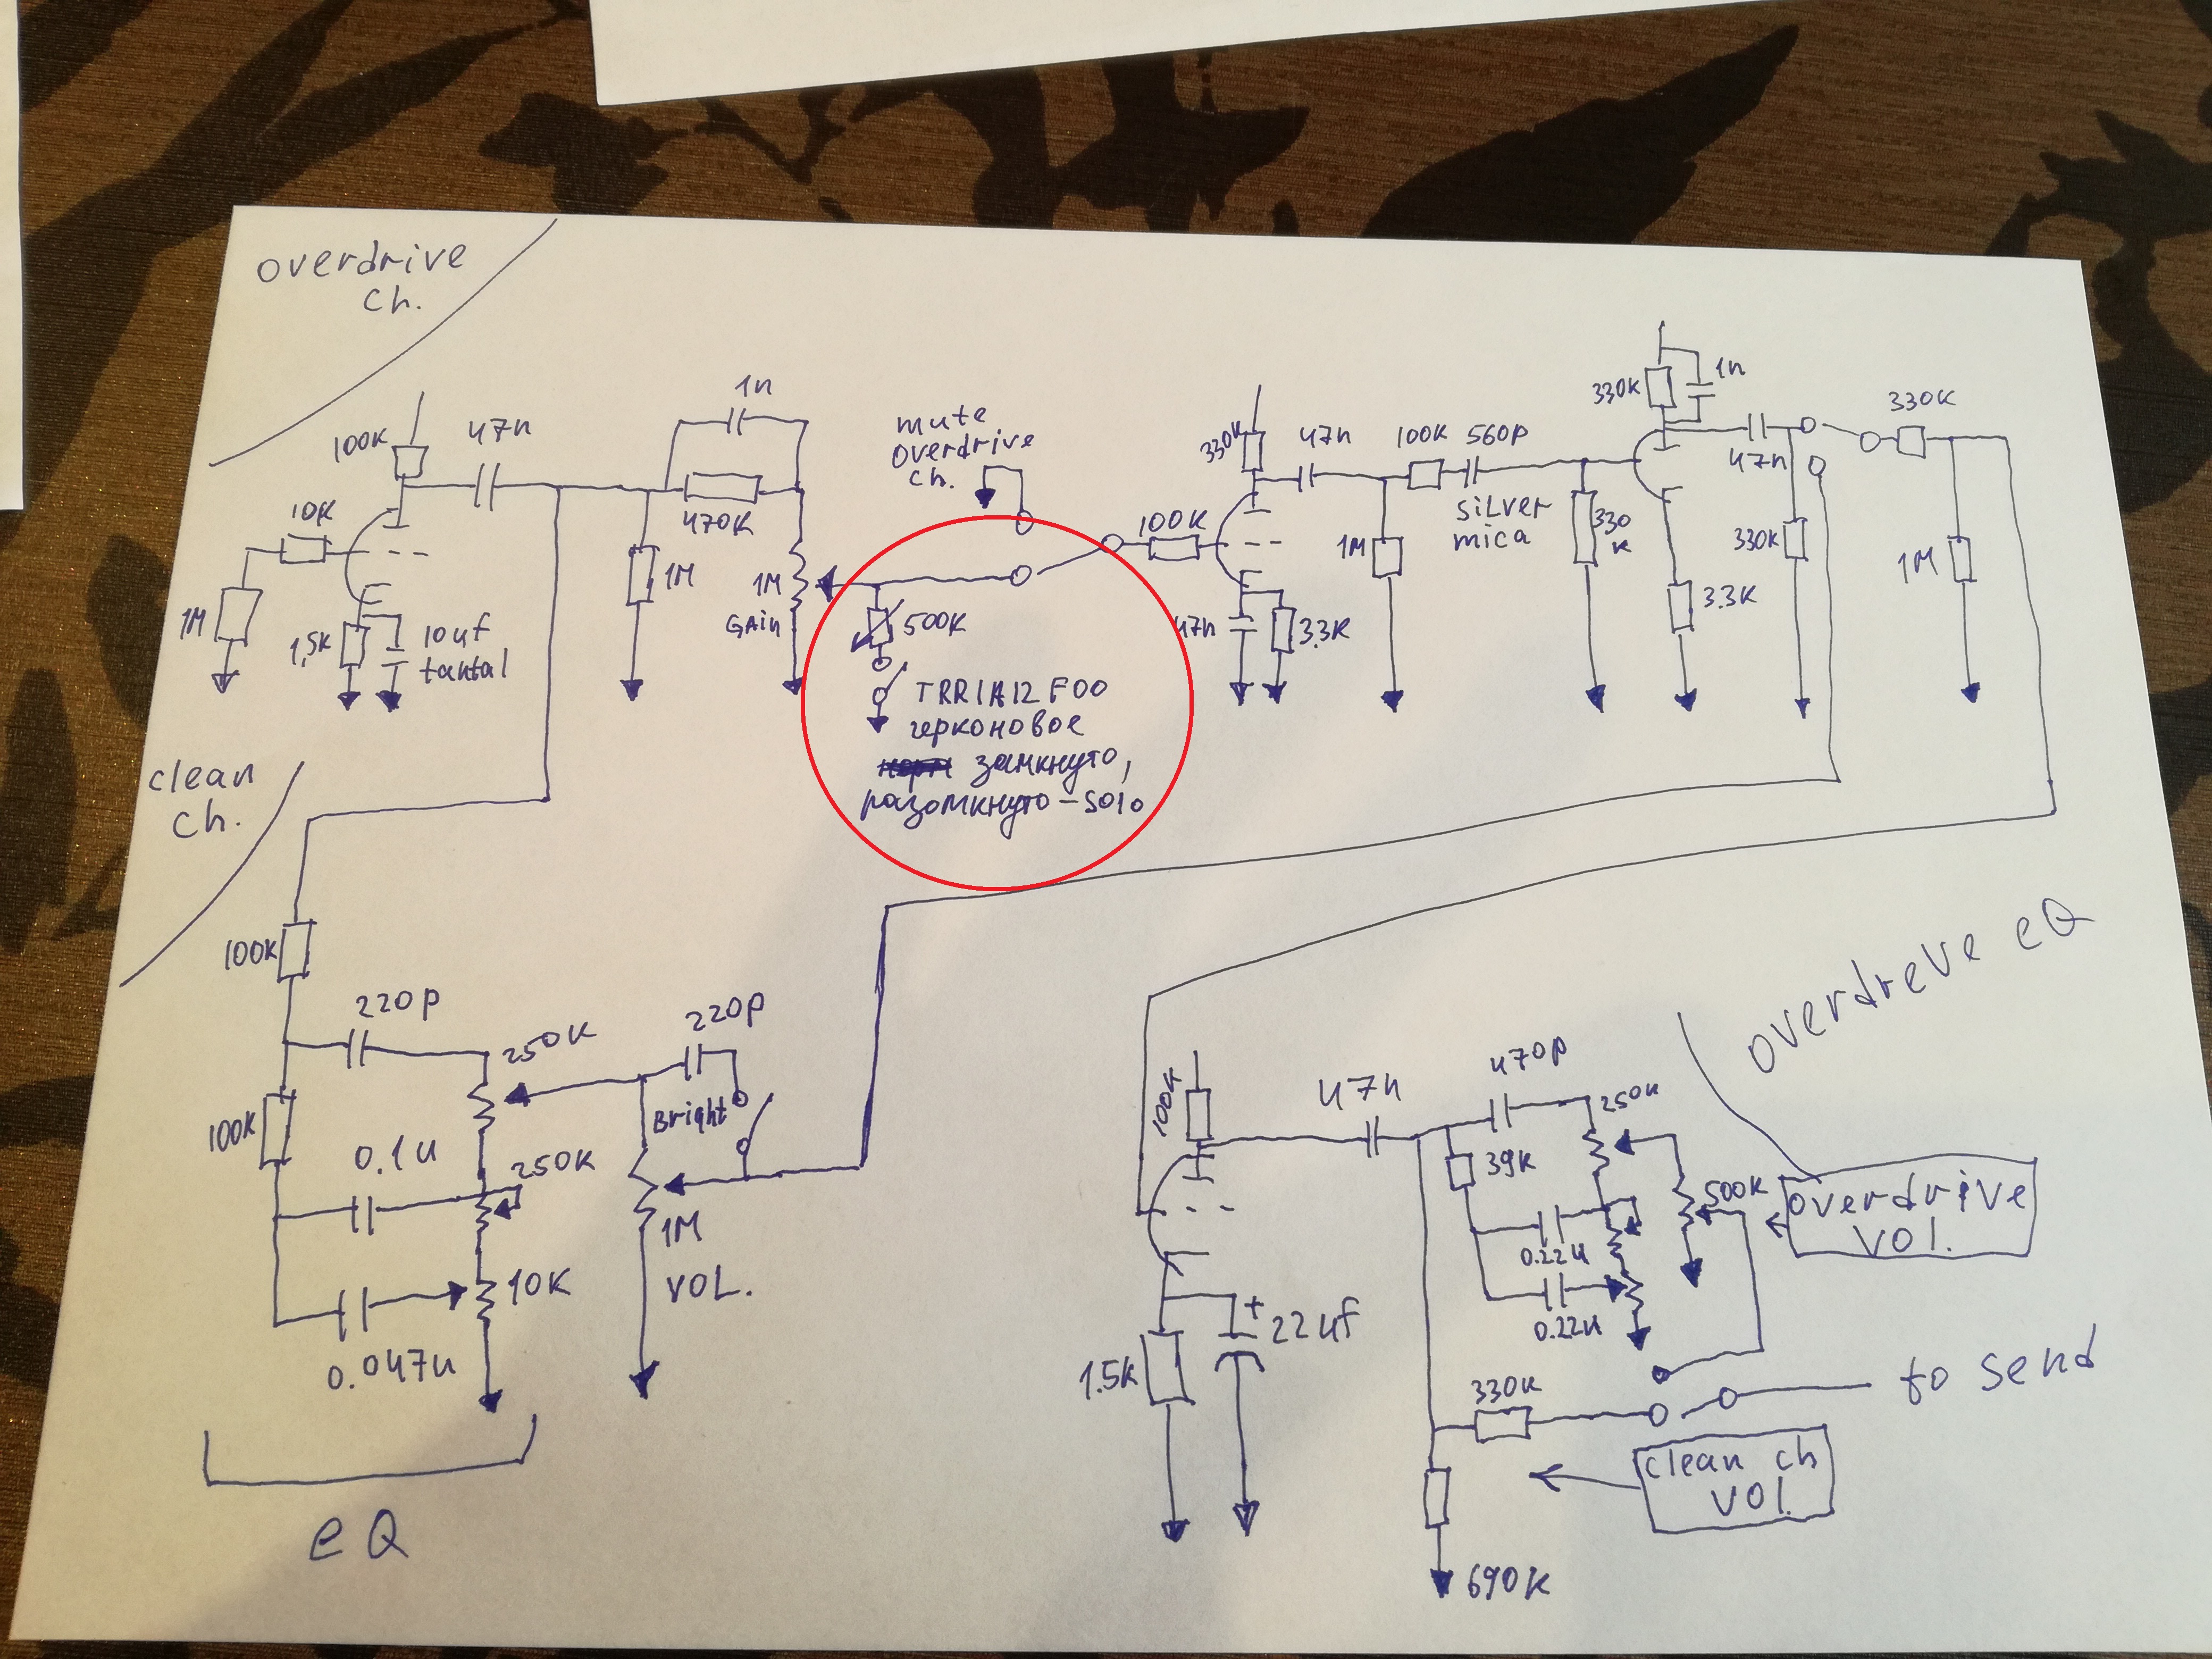 overdrive
ch.
100K
47n
1n
470K
10K
1M
1,5K
10uf
tantal
1M
1M
GAin
mute
overdrive
ch.
500K
TRR1A12F00
герконовое
замкнуто,
разомкнуто - solo
330K
47n
100K
560p
100K
silver
mica
1M
47n
3.3K
330
K
330K
1n
47n
3.3K
330K
330K
1M
clean
ch.
100K
220p
250K
220p
Bright
100K
0.1u
250K
1M
VOL.
10K
0.047u
eQ
overdreve eQ
100K
47n
470p
250K
39K
500K
overdrive
VOL.
0.22u
0.22u
22uf
1.5K
330K
to send
clean ch
VOL.
690K